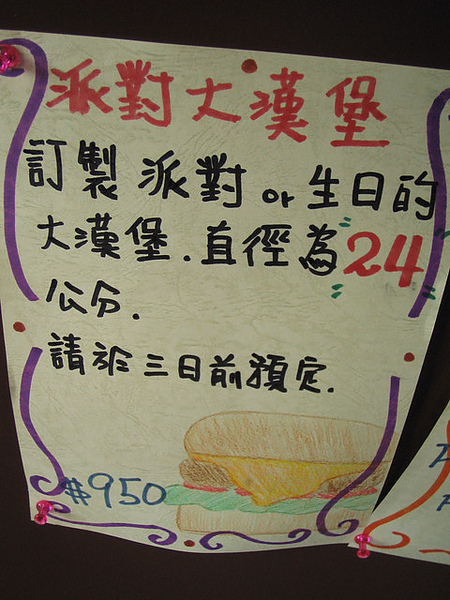 派對大漢堡
訂製派對 or 生日的
大漢堡.直徑為"24"
公分.
請於三日前預定.
$950